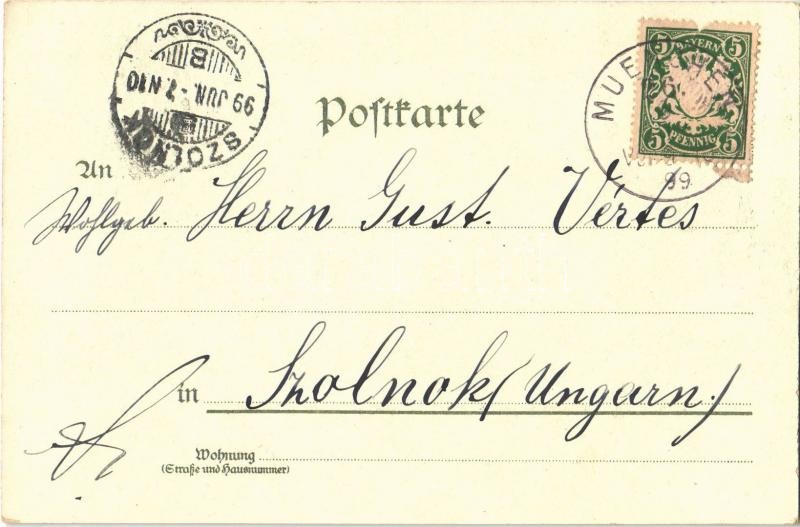 SZOLNOK
99 JUN. - 7. N10
B
5 BAYERN 5
5 PFENNIG 5
MUENCHEN
99
Postkarte
An
Wohlgeb. Herrn Gust. Vértes
in Szolnok (Ungarn.)
Wohnung
(Straße und Hausnummer)